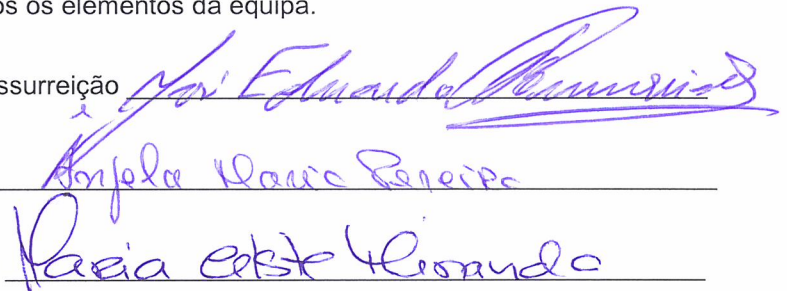 os os elementos da equipa.
ssurreição José Eduardo Ressurreição
Ângela Maria Pereira
Maria Celeste Miranda